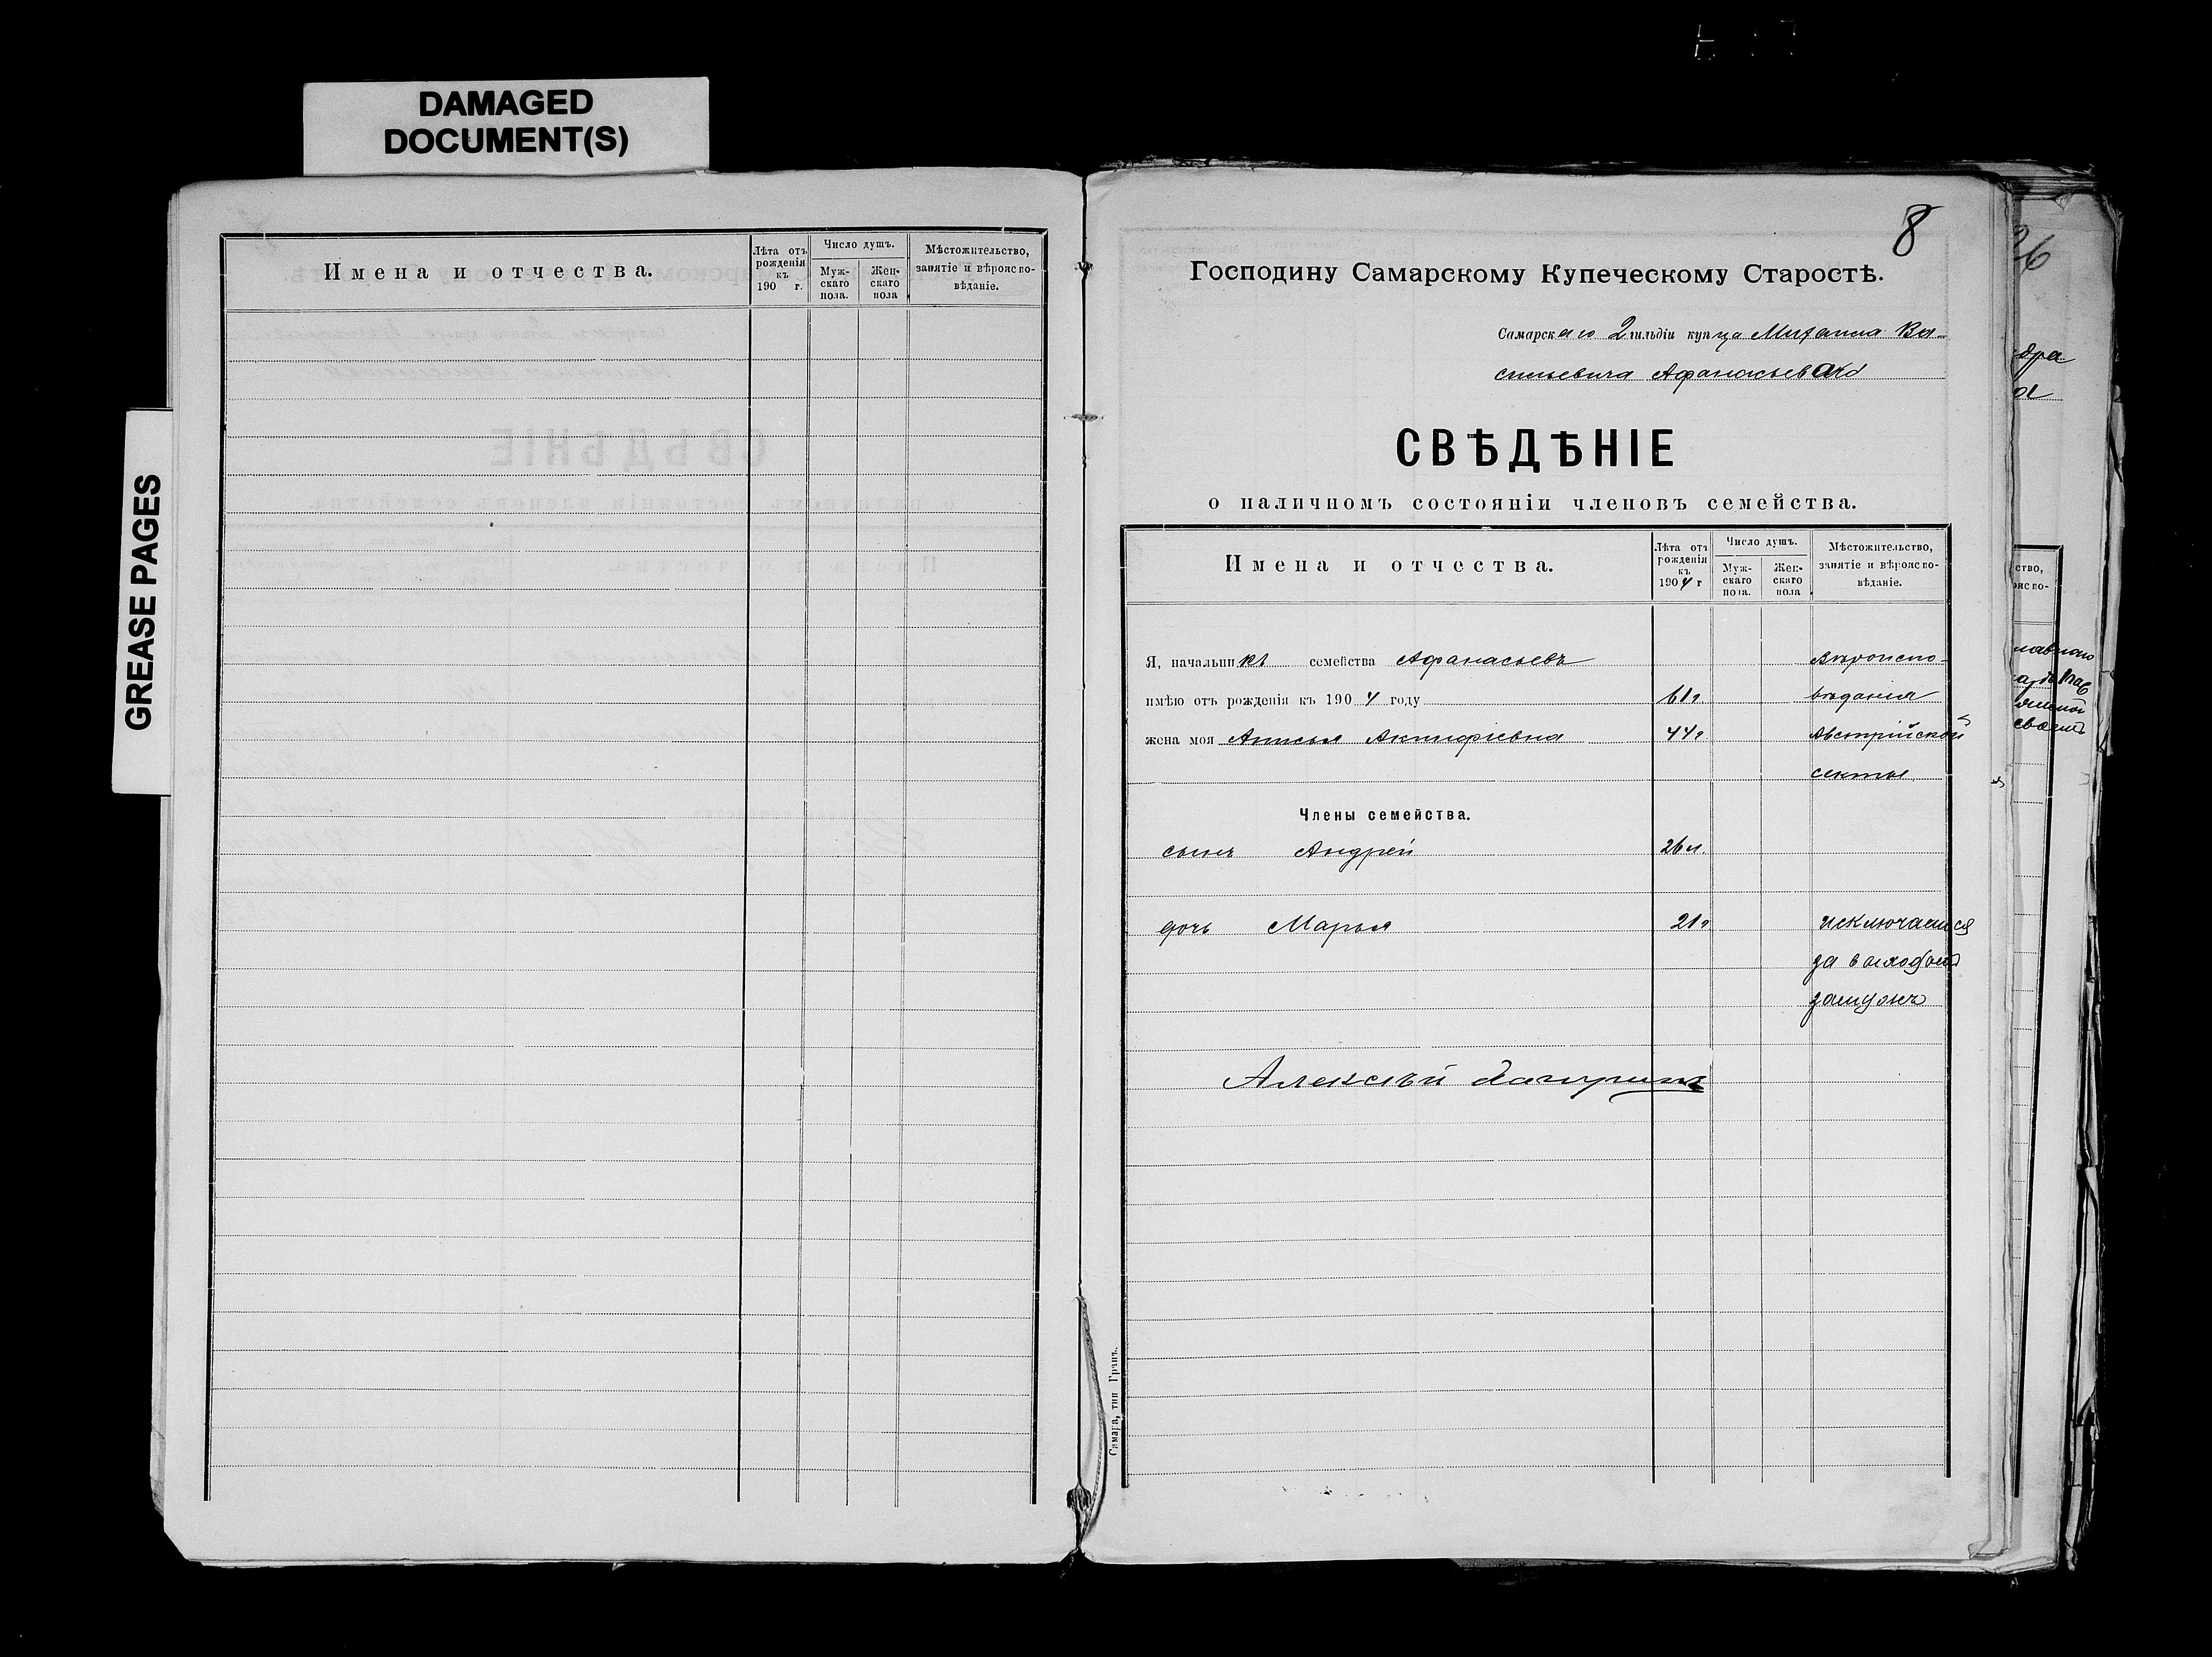 DAMAGED
DOCUMENT(S)
GREASE PAGES
Имена и отчества.
Лѣта отъ рожденія къ 190 г.
Число душъ.
Мужскаго пола.
Женскаго пола
Мѣстожительство, занятіе и вѣроисповѣданіе.
8
Господину Самарскому Купеческому Старостѣ.
Самарскаго 2 гильдіи купца Михаила Ва-
сильевича Афанасьева
СВѢДѢНІЕ
о наличномъ состояніи членовъ семейства.
Имена и отчества.
Лѣта отъ рожденія къ 1904 г
Число душъ.
Мужскаго пола.
Женскаго пола
Мѣстожительство, занятіе и вѣроисповѣданіе.
Я, начальникъ семейства Афанасьевъ Вѣроиспо-
имѣю отъ рожденія къ 1904 году 61г вѣданія
жена моя Анисья Акинфіевна 44г Австрійской
секты
Члены семейства.
сынъ Андрей 26 л.
дочь Марья 21г исключается
за выходомъ
замужъ
Алексѣй
Самара, тип Гранъ.
26